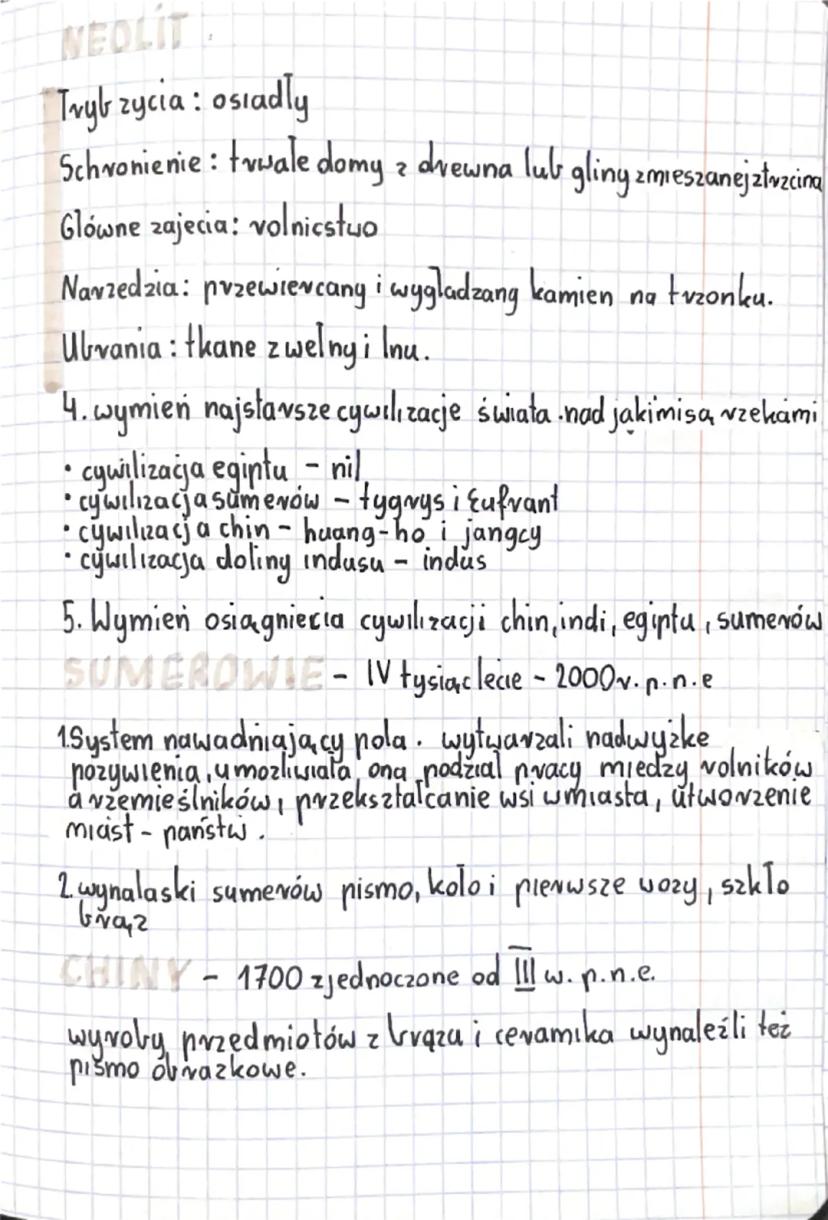 NEOLIT
Tryb zycia : osiadły
Schronienie : trwałe domy z drewna lub gliny zmieszanej z trzciną
Główne zajecia: rolnictwo
Narzedzia: przewiercany i wygladzang kamien na trzonku.
Ubrania : tkane z wełny i lnu.
4. wymień najstarsze cywilizacje świata . nad jakimi są rzekami
• cywilizacja egiptu - nil
• cywilizacja sumerów - tygrys i Eufrant
• cywilizacja chin - huang-ho i jangcy
• cywilizacja doliny indusu - indus
5. Wymień osiągniecia cywilizacji chin, indi, egiptu, sumerów
SUMEROWIE - IV tysiąclecie - 2000r. p.n.e
1. System nawadniający pola . wytwarzali nadwyżke
pozywienia, umozliwiała ona podział pracy miedzy rolników
a rzemieślników, przekształcanie wsi w miasta, utworzenie
miast - państw .
2. wynalaski sumerów pismo, koło i pierwsze wozy, szkło
brąz
CHINY - 1700 zjednoczone od III w. p.n.e.
wyroby przedmiotów z brązu i ceramika wynaleźli też
pismo obrazkowe.